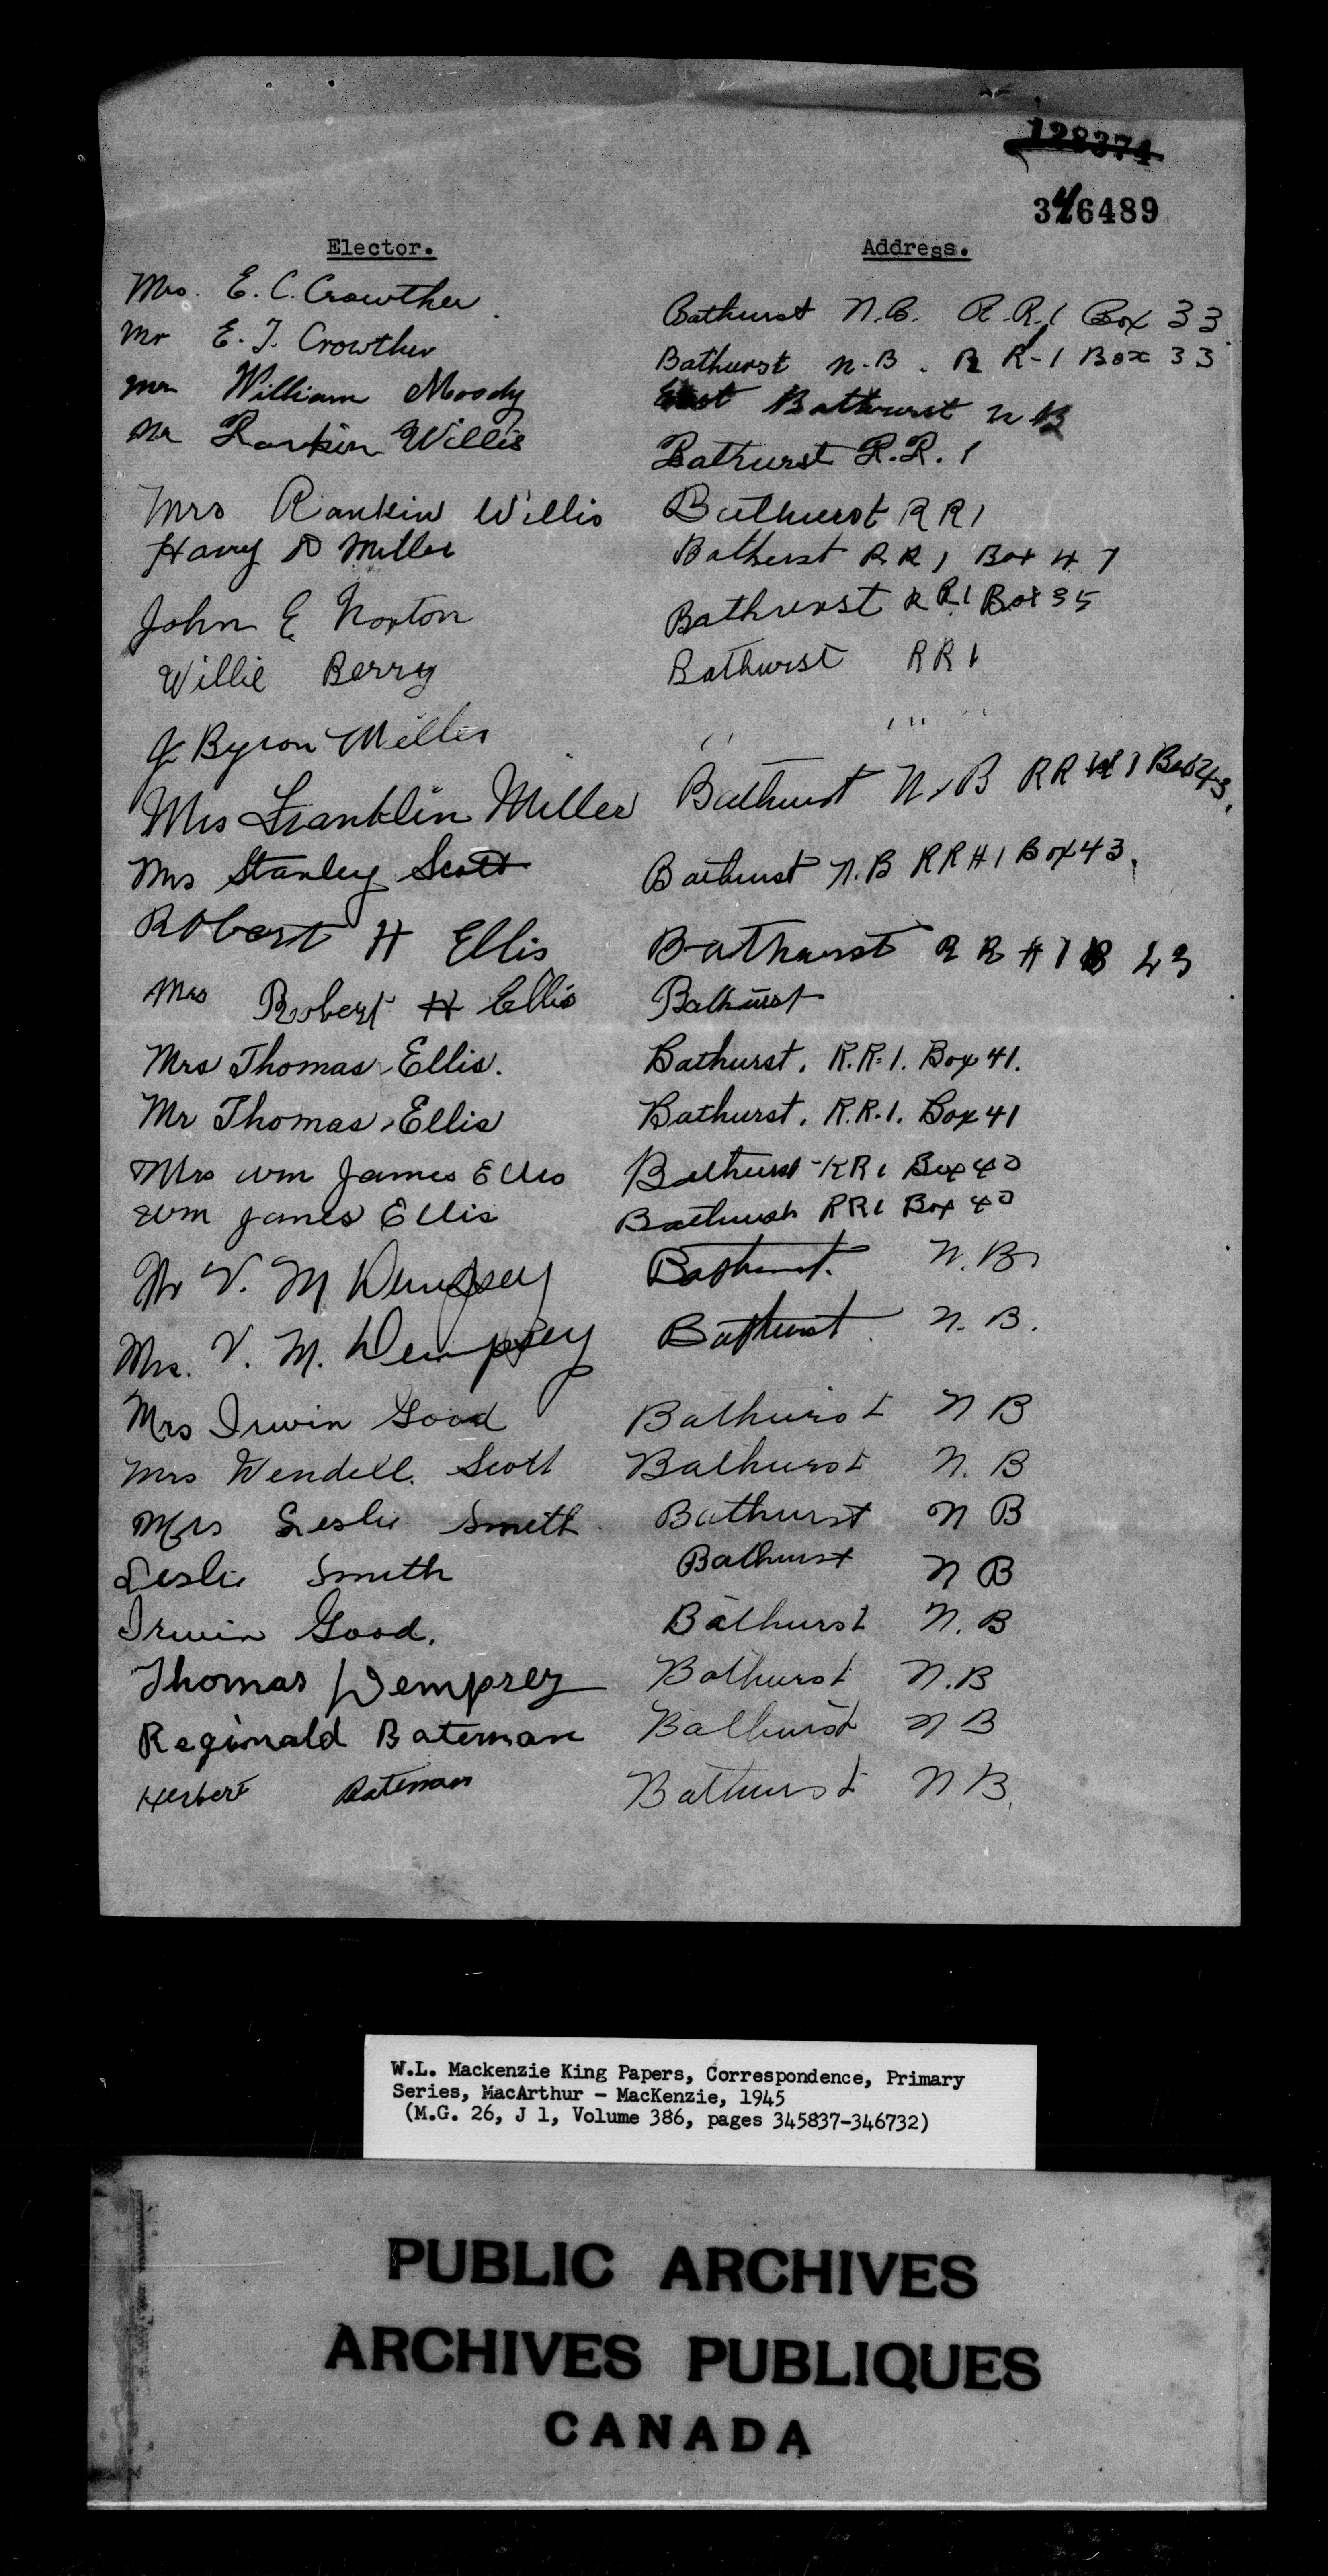 128374
346489
Elector. Address.
Mrs. E. C. Crowther. Bathurst N.B. R.R.1 Box 33.
Mr E. J. Crowther Bathurst N.B. R R-1 Box 33
William Moody East Bathurst N B
Mr Rankin Willis Bathurst R.R. 1
Mrs Rankin Willis Bathurst R R 1
Harry D Miller Bathurst R R 1 Box 47
John E Norton Bathurst R R 1 Box 35
Willie Berry Bathurst R R 1
J Byron Miller " "
Mrs Franklin Miller Bathurst N.B RR # 1 Box 43.
Mrs Stanley Scott Bathurst N.B RR # 1 Box 43.
Robert H Ellis Bathurst R R # 1 B 43
Mrs Robert H Ellis Bathurst
Mrs Thomas Ellis. Bathurst. R.R.1. Box 41.
Mr Thomas Ellis Bathurst. R.R.1. Box 41
Mrs Wm James Ellis Bathurst RR1 Box 40
Wm James Ellis Bathurst RR1 Box 40
Mr V. M Dempsey Bathurst. N.B
Mrs. V. M. Dempsey Bathurst. N. B.
Mrs Irwin Good Bathurst N B
Mrs Wendell Scott Bathurst N. B
Mrs Leslie Smith Bathurst N B
Leslie Smith Bathurst N B
Irwin Good. Bathurst N. B
Thomas Dempsey Bathurst N.B
Reginald Bateman Bathurst N B
Herbert Bateman Bathurst N B.
W.L. Mackenzie King Papers, Correspondence, Primary
Series, MacArthur - MacKenzie, 1945
(M.G. 26, J 1, Volume 386, pages 345837-346732)
PUBLIC ARCHIVES
ARCHIVES PUBLIQUES
CANADA